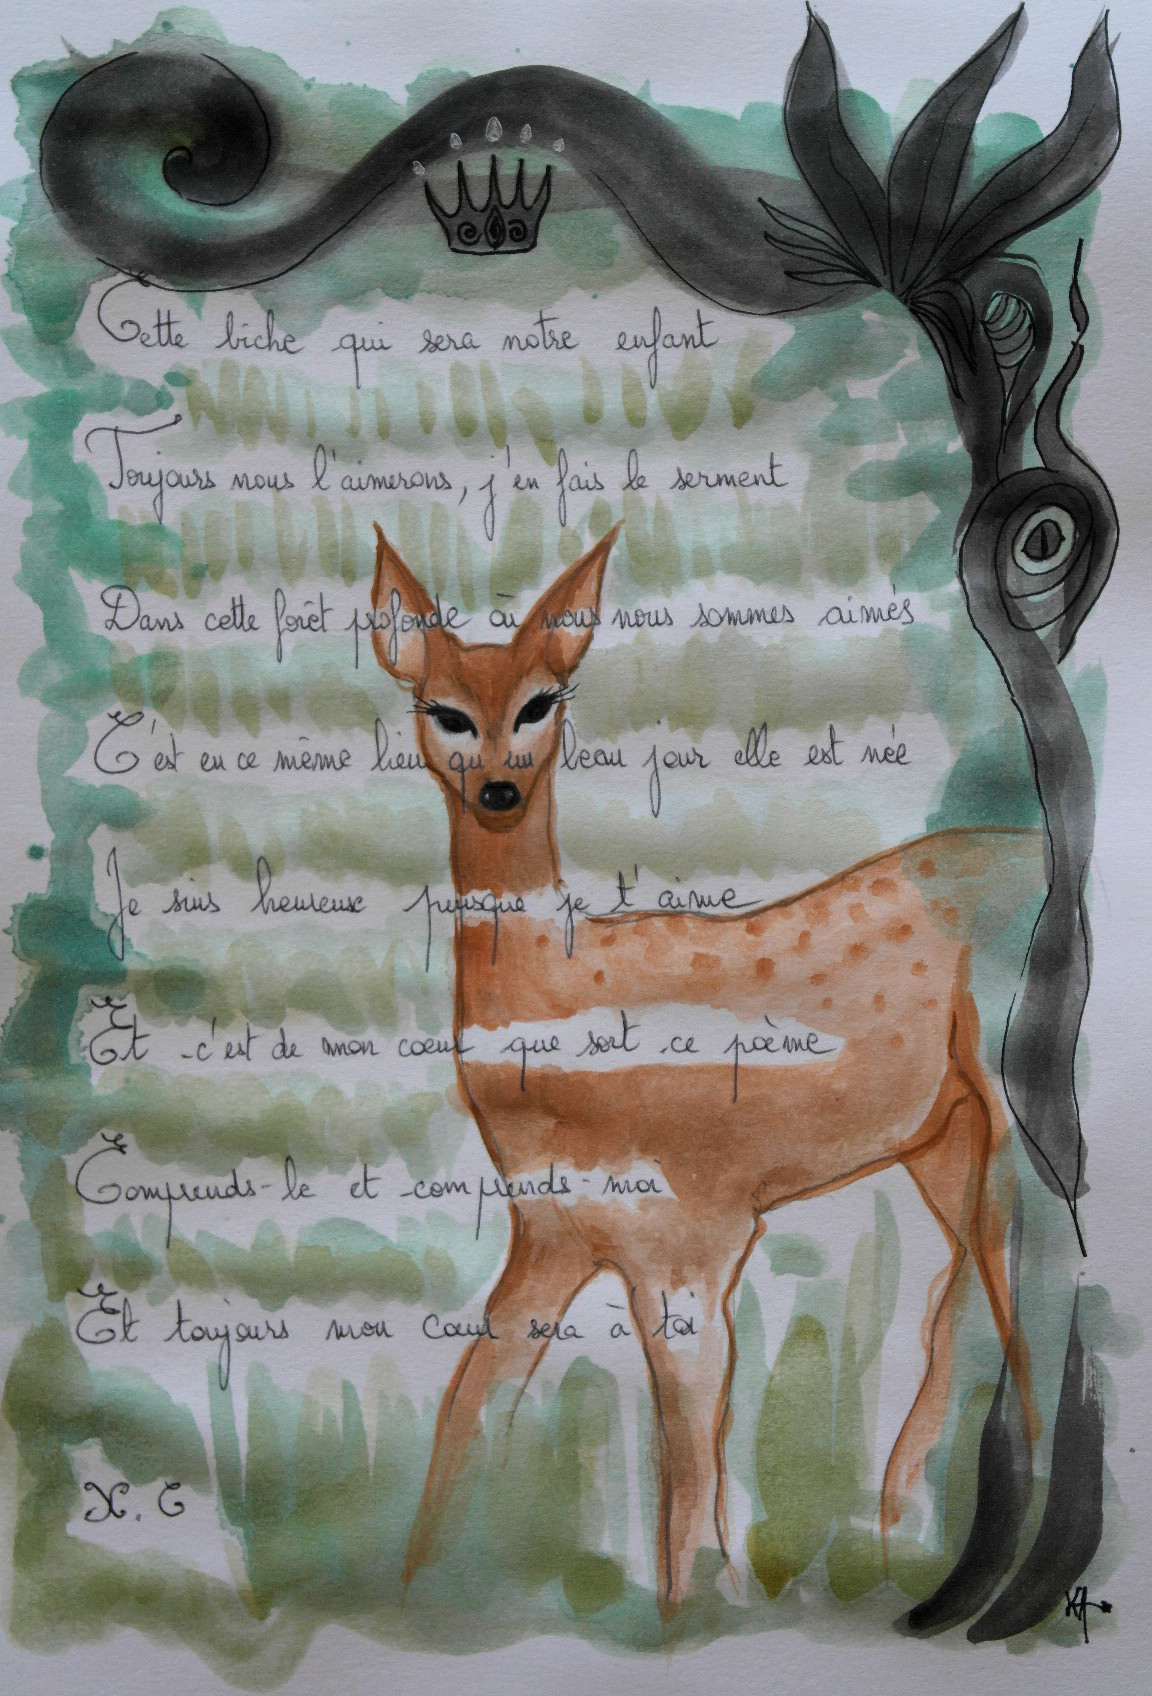 Cette biche qui sera notre enfant
Toujours nous l'aimerons, j'en fais le serment
Dans cette forêt profonde où nous nous sommes aimés
C'est en ce même lieu qu'un beau jour elle est née
Je suis heureuse puisque je t'aime
Et c'est de mon coeur que sort ce poème
Comprends-le et comprends-moi
Et toujours mon coeur sera à toi
X. C
KA